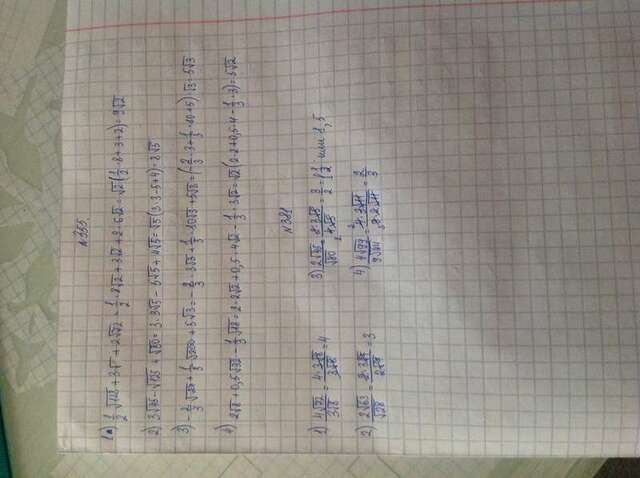 №355.
1) 1/2 √128 + 3√ + 2√72 = 1/2 · 8√2 + 3√2 + 2 · 6√2 = √2(1/2 · 8 + 3 + 2) = 9√2
2) 3√45 - √125 + √80 = 3 · 3√5 - 5√5 + 4√5 = √5(3·3-5+4) = 8√5
3) -2/3 √27 + 1/3 √300 + 5√3 = -2/3 · 3√3 + 1/3 · 10√3 + 5√3 = (-2/3 · 3 + 1/3 · 10 + 5) · √3 = 5√3
4) 2√8 + 0,5√32 - 1/3 √18 = 2 · 2√2 + 0,5 · 4√2 - 1/3 · 3√2 = √2(2·2 + 0,5·4 - 1/3 · 3) = 5√2
№381
1) 4√72 / 3√8 = 4·3√8 / 3√8 = 4
3) 2√45 / √80 = 2·3√5 / 4√5 = 3/2 = 1 1/2 или 1,5
2) 2√63 / √28 = 2·3√7 / 2√7 = 3
4) 4√99 / 9√44 = 4·3√11 / 9·2√11 = 2/3